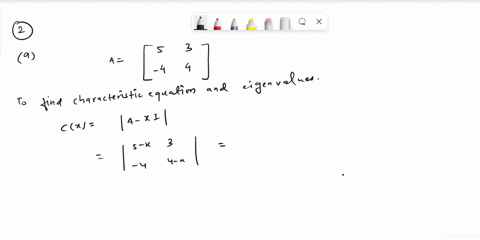 2
(a) A = [ 5 3
-4 4 ]
To find characteristic equation and eigenvalues.
C(x) = |A - xI|
= | 5-x 3
-4 4-x | =